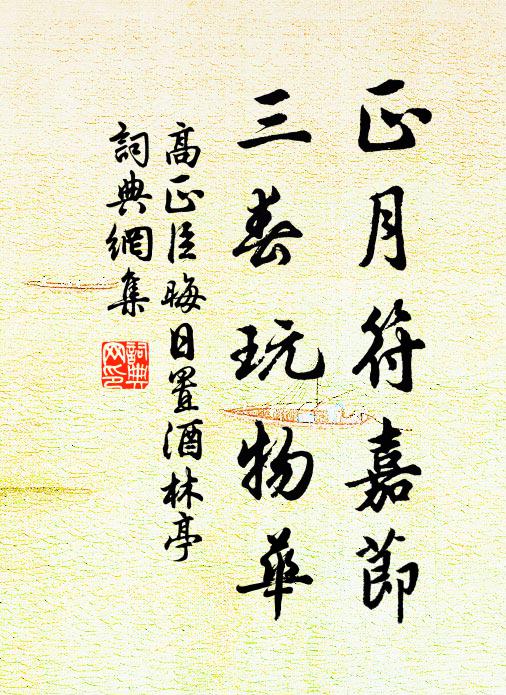 正月符嘉節
三春玩物華
高正臣晦日置酒林亭
詞典網集
詞典网印